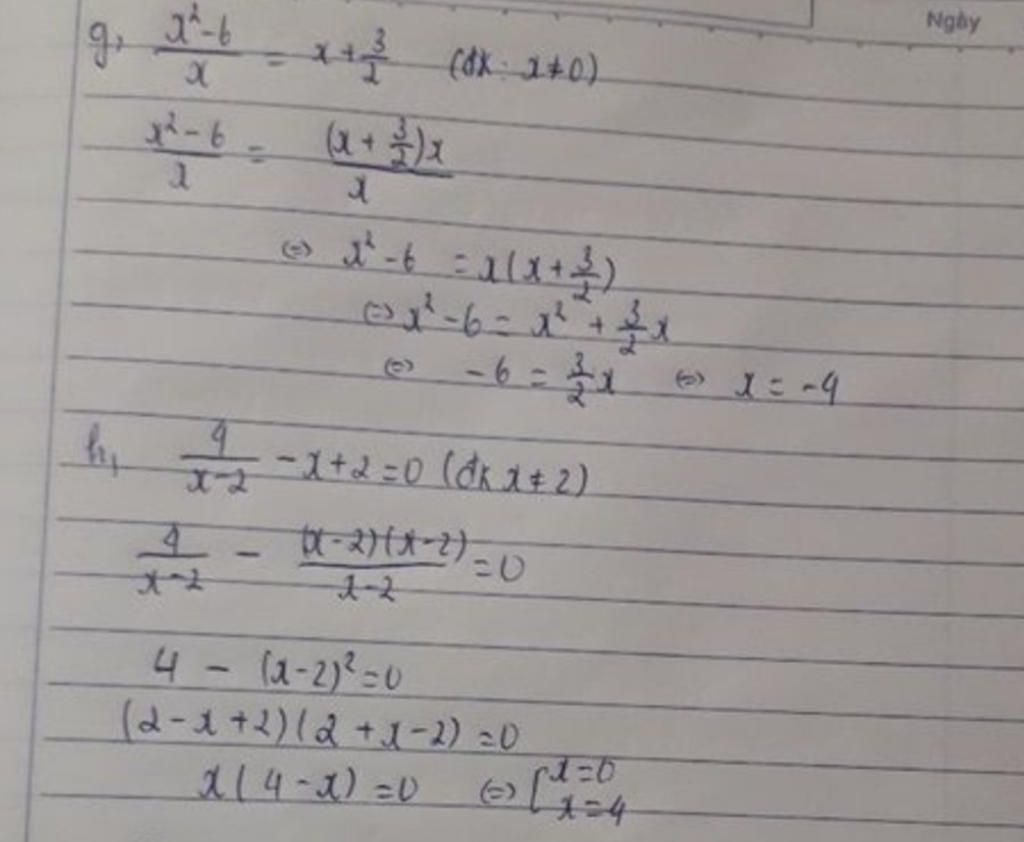 Ngày
g, \frac{x²-6}{x} = x + \frac{3}{2} (đk: x≠0)
\frac{x²-6}{x} = \frac{(x + \frac{3}{2})x}{x}
⇔ x²-6 = x(x + \frac{3}{2})
⇔ x²-6 = x² + \frac{3}{2}x
⇔ -6 = \frac{3}{2}x ⇔ x = -4
h, \frac{4}{x-2} - x + 2 = 0 (đk x≠2)
\frac{4}{x-2} - \frac{(x-2)(x-2)}{x-2} = 0
4 - (x-2)² = 0
(2-x+2)(2+x-2) = 0
x(4-x) = 0 ⇔ [x=0
x=4